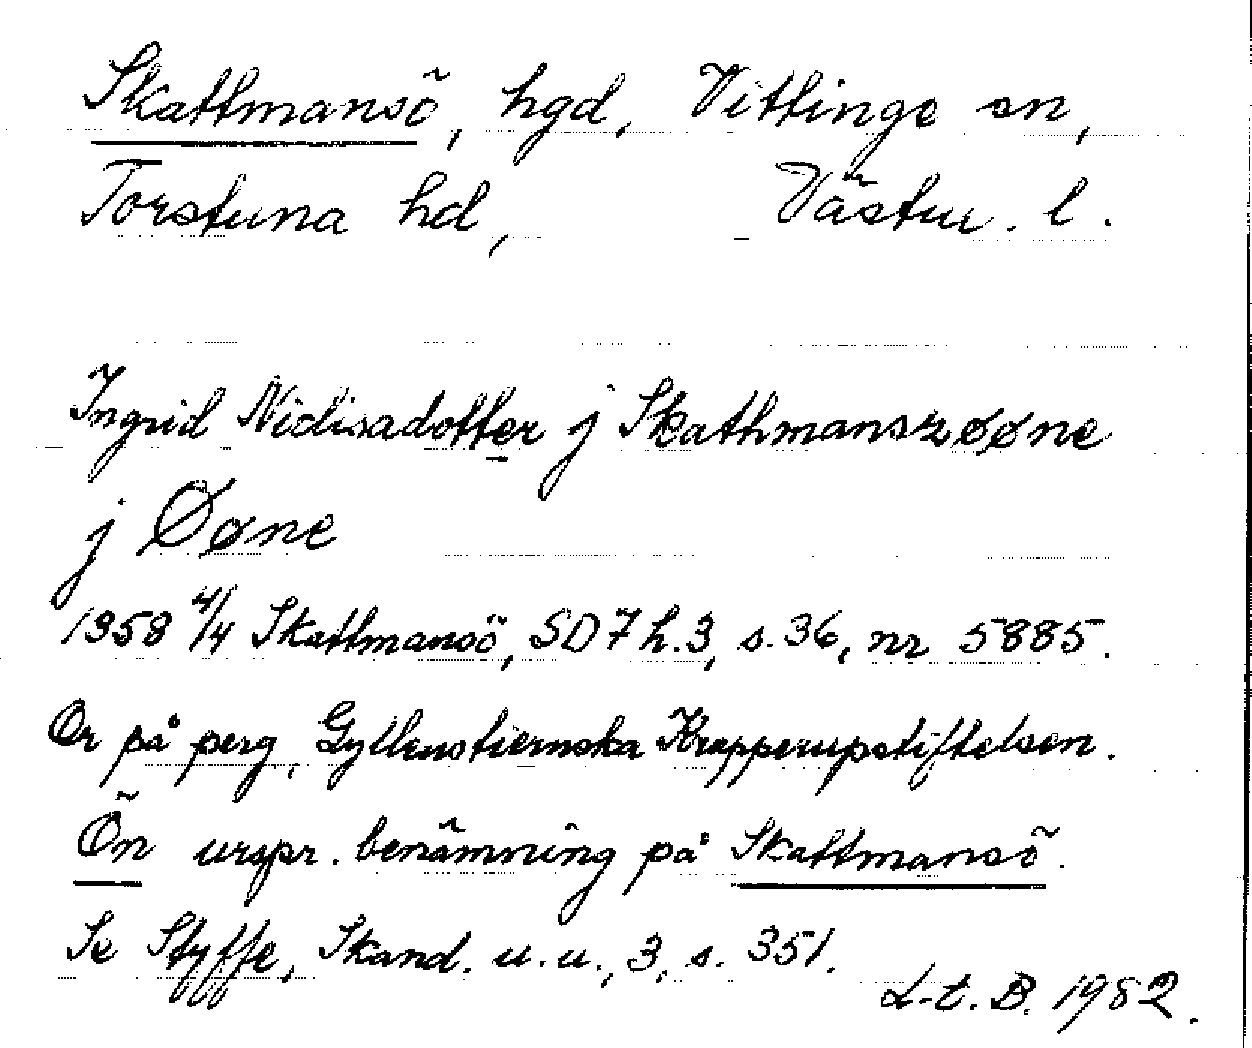 Skattmansö, hgd, Vittinge sn,
Torstuna hd, Västm. l.
Ingrid Nidisadotter j Skathmanszøøne
j Øøne
1358 4/4 Skattmansö, SD 7 h. 3, s. 36, nr 5885.
Or på perg, Gyllenstiernska Krapperupstiftelsen.
Ön urspr. benämning på Skattmansö.
Se Styffe, Skand. u. u., 3, s. 351.
L-t. B. 1982.